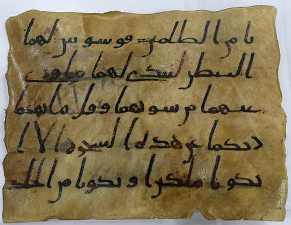 نا من الظلمين فوسوس لهما
الشيطن ليبدي لهما ما وري
عنهما من سوتهما وقل ما نهكما
ربكما عن هذه الشجرة الا ان
تكونا ملكين او تكونا من الخلد